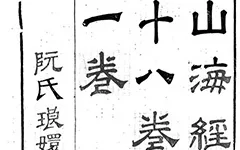 山海經
十八卷
一卷
阮氏琅嬛